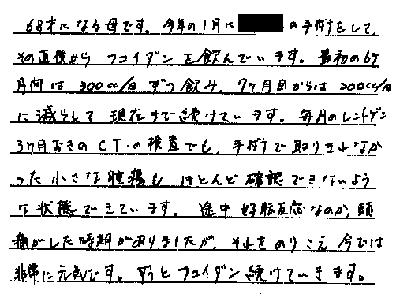 68才になる母です。今年の1月に の手術をして、
その直後から フコイダン を飲んでいます。最初の6ヶ
月間は 300cc/日 ずつ飲み、7ヶ月目からは 200cc/日
に減らして 現在まで続けています。毎月のレントゲン
3ヶ月おきのCTの検査でも、手術で取りきれなか
った小さな腫瘍も ほとんど確認できないよう
な状態できています。途中 好転反応なのか、頭
痛がした時期がありましたが、それをのりこえ 今では
非常に元気です。ずっとフコイダン続けていきます。